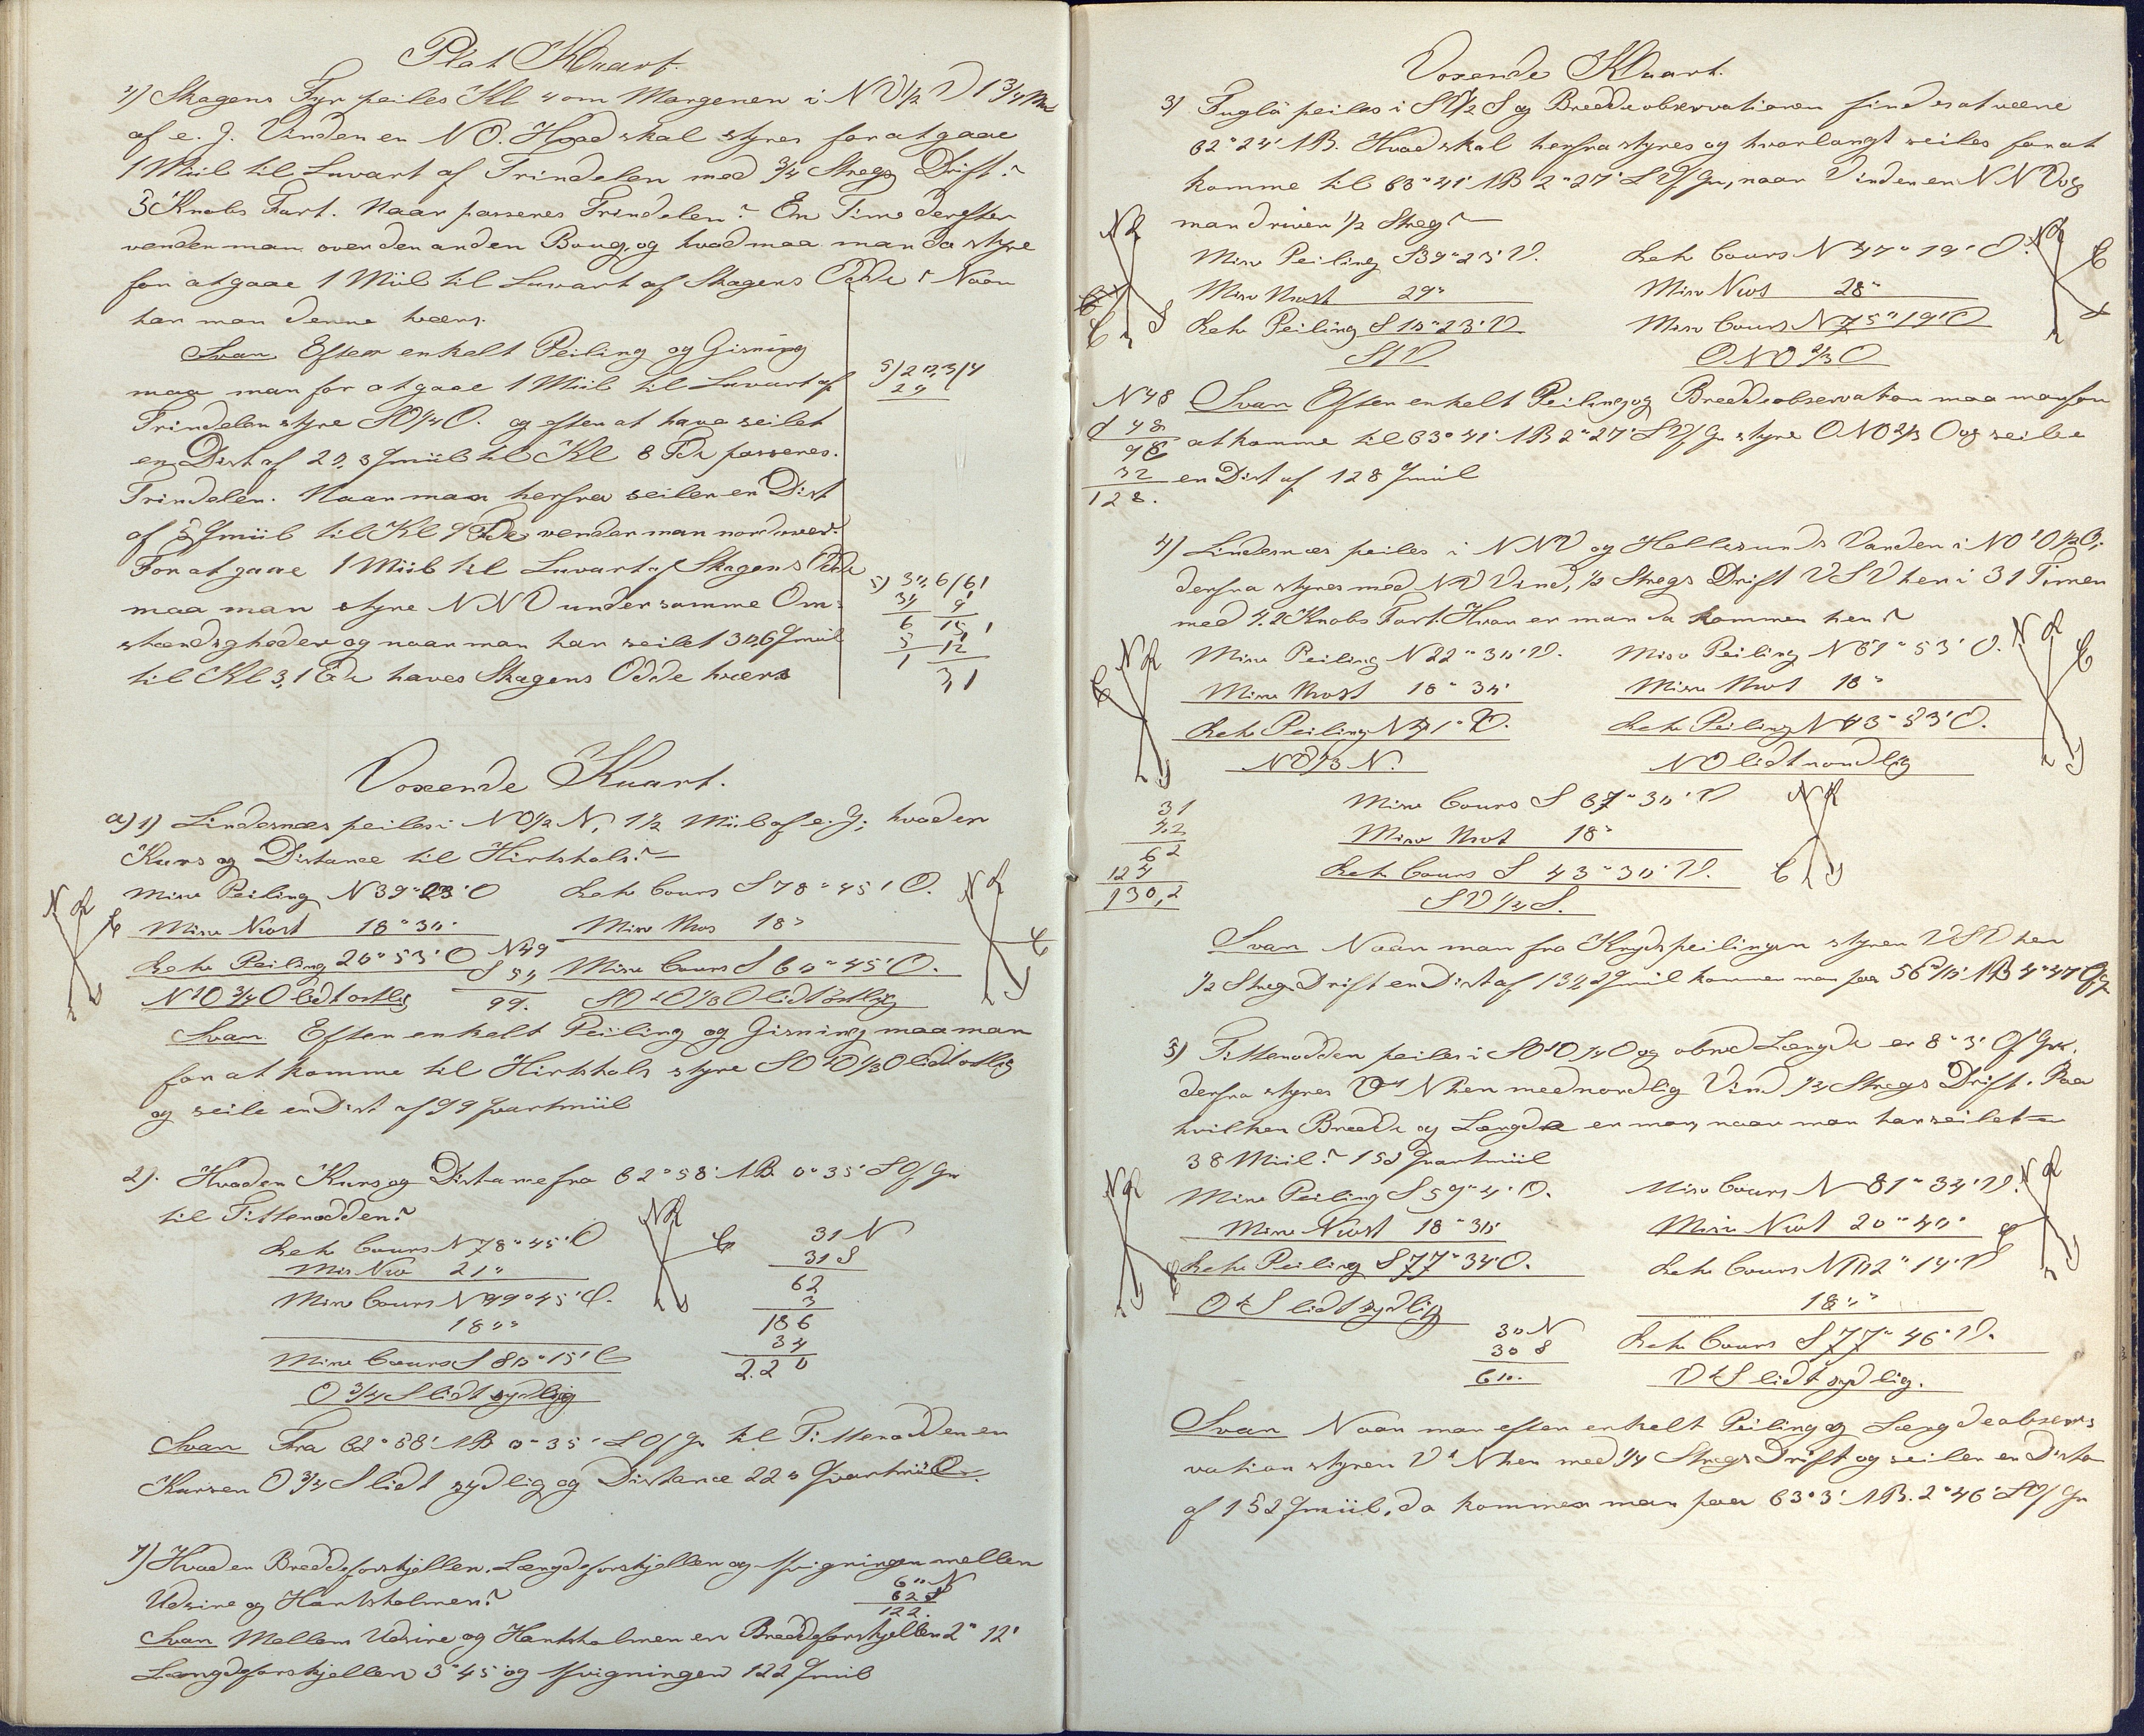 Plat Kaart.
4) Skagens Fyr peiles Kl 4 om Morgenen i NV1/2V 1 3/4 Miil
af e. G. Vinden er NO. Hvad skal styres for at gaae
1 Miil til Luvart af Trindelen med 3/4 Stregs Drift?
5 Knobs Fart. Naar passeres Trindelen? En Time derefter
vender man over den anden Boug, og hvad maa man da styre
for at gaae 1 Miil til Luvart af Skagens Odde? Naar
har man denne tværs.
Svar Efter enkelt Peiling og Gisning
maa man for at gaae 1 Miil til Luvart af
Trindelen styre SO1/4O. og efter at have seilet
en Dist af 20,3 Qmiil til Kl 8 passeres.
Trindelen. Naar man herfra seiler en Dist
af 5 Qmiil til Kl 9 vender man nordover.
For at gaae 1 Miil til Luvart af Skagens Odde
maa man styre NNV under samme Om-
stændigheder og naar man har seilet 30,6 Qmiil
til Kl 3,1 haves Skagens Odde tværs
5) 20,3/4
20
5) 30,6/6,1
30 9
6 15,1
5 12
1 3,1
Voxende Kaart.
a) 1) Lindesnæs peiles i NO1/2N, 1 1/2 Miil af e. G; hvad er
Kurs og Distance til Hirtshals?
Misv Peiling N39°23'O Retv Cours S78°45'O.
Misv Nvest 18°30' Misv Nves 18°
Retv Peiling 20°53'O N49 S50 Misv Cours S60°45'O.
NtO 3/4 O lidt ostlig 99. SOtO1/3O lidt östlig
Svar Efter enkelt Peiling og Gisning maa man
for at komme til Hirtshals styre SOtO1/3O lidt ostlig
og seile en Dist af 99 Qvartmiil
2). Hvad er Kurs og Distance fra 62°58' NB. 0°35' L O f Gr
til Tittenodden?
Retv Cours N78°45'O
Mis Nv 21°
Misv Cours N99°45'O.
180°
Misv Cours S80°15'O
O 3/4 S lidt sydlig
31 N
31 S
62
3
186
34
220
Svar Fra 62°58' NB 0°35' L O f Gr til Tittenodden er
Kursen O 3/4 S lidt sydlig og Distance 220 Qvartmiil.
7) Hvad er Breddeforskjellen, Længdeforskjellen og Afvigningen mellem
Udsire og Hantsholmen?
60 N
62 S
122.
Svar Mellem Udsire og Hantsholmen er Breddeforskjellen 2°12'
Længdeforskjellen 3°45' og Afvigningen 122 Qmiil
Voxende Kaart.
3) Fuglö peiles i SV1/2S og Breddeobservationen findes at være
62°24' NB. Hvad skal herfra styres og hvorlangt seiles for at
komme til 63°41' NB 2°27' L V f Gr, naar Vinden er NNV og
man driver 1/2 Streg?
Misv Peiling S39°23'V. Retv Cours N47°19'O.
Misv Nvest 29° Misv Nves 28°
Retv Peiling S10°23'V Misv Cours N75°19'O
StV ONO 2/3 O
N48
S 48
96
32
128.
Svar Efter enkelt Peiling og Breddeobservation maa man for
at komme til 63°41' NB 2°27' L V f Gr styre ONO2/3O og seile
en Dist af 128 Qmiil
4) Lindesnæs peiles i NNV og Hellesunds Varden i NOtO1/2O;
derfra styres med NV Vind, 1/2 Stregs Drift VSV hen i 31 Timer
med 4.2 Knobs Fart. Hvor er man da kommen hen?
Misv Peiling N22°30'V. Misv Peiling N61°53'O.
Misv Nvest 18°30' Misv Nvest 18°
Retv Peiling N41°V. Retv Peiling N43°53'O.
NV1/3N. NO lidt nordlig
31
4.2
62
124
130,2
Misv Cours S 67°30'V
Misv Nvest 18°
Retv Cours S 43°30'V.
SV 1/4 S.
Svar Naar man fra Krydspeilingen styrer VSV hen
1/2 Stregs Drift en Dist af 130,2 Qmiil kommer man paa 56°10' NB 4°47' O f Gr
5) Tittenodden peiles i SOtO1/4O og obsvd Længde er 8°3' O f Grw.
derfra styres VtN hen med nordlig Vind 1/4 Stregs Drift. Paa
hvilken Bredde og Længde er man, naar man har seilet
38 Miil? 152 Qvartmiil
Misv Peiling S59°4'O. Misv Cours N81°34'V.
Misv Nvest 18°30' Misv Nvest 20°40'
Retv Peiling S77°34'O. Retv Cours N102°14'V
OtS lidt sydlig 180°
30 N
30 S
60.
Retv Cours S77°46'V.
VtS lidt sydlig.
Svar Naar man efter enkelt Peiling og Længdeobser-
vation styrer VtN hen med 1/4 Stregs Drift og seiler en Distance
af 152 Qmiil, da kommer man paa 63°3' NB. 2°46' L O f Gr